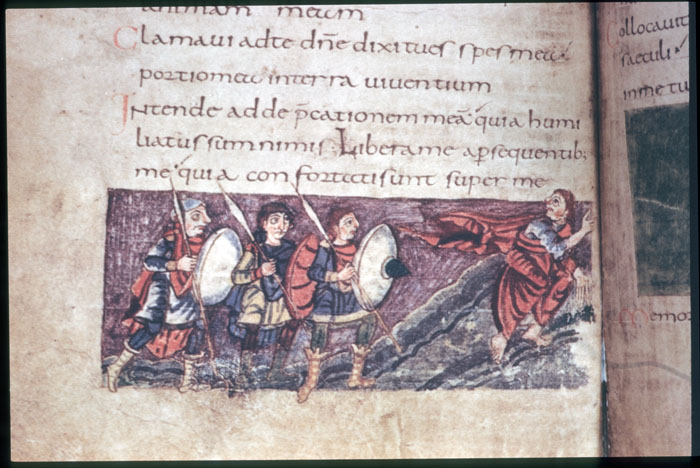 animam meam
Clamavi ad te dñe dixi tu es spes mea
portio mea in terra viventium
Intende ad dep̄cationem meā quia humi
liatus sum nimis Libera me a p̄sequentib;
me quia confortati sunt super me
collocavit
saeculi
in me tu
Memor